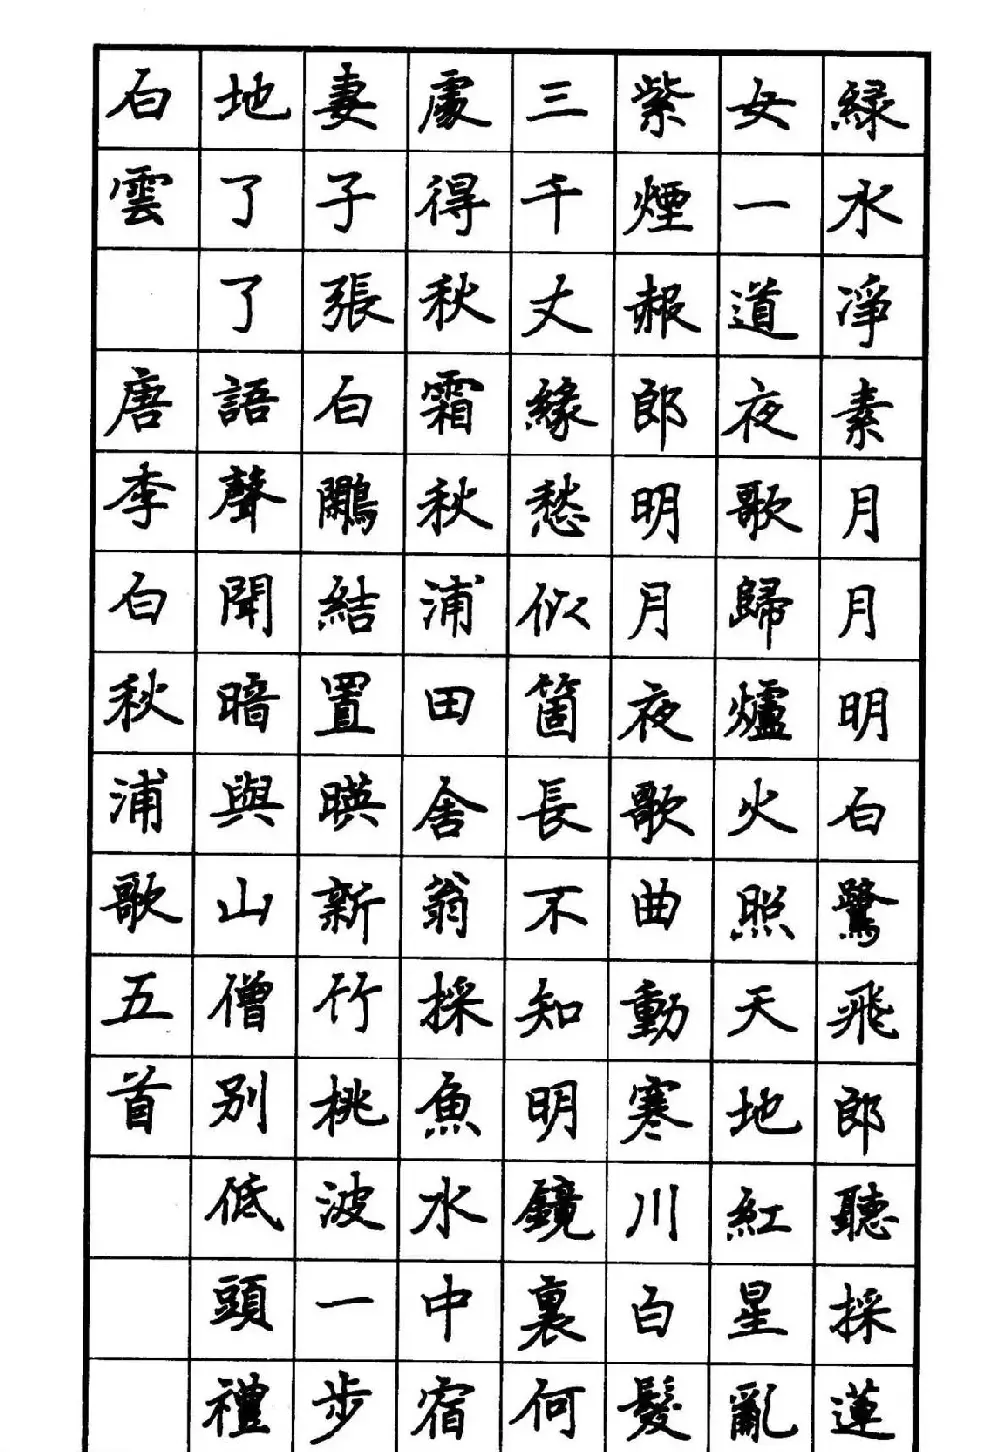 緑水凈素月月明白鷺飛郎聽採蓮
女一道夜歌歸爐火照天地紅星亂
紫煙赧郎明月夜歌曲動寒川白髮
三千丈緣愁似箇長不知明鏡裏何
處得秋霜秋浦田舍翁採魚水中宿
妻子張白鷴結置暎新竹桃波一步
地了了語聲聞暗與山僧別低頭禮
白雲 唐李白秋浦歌五首